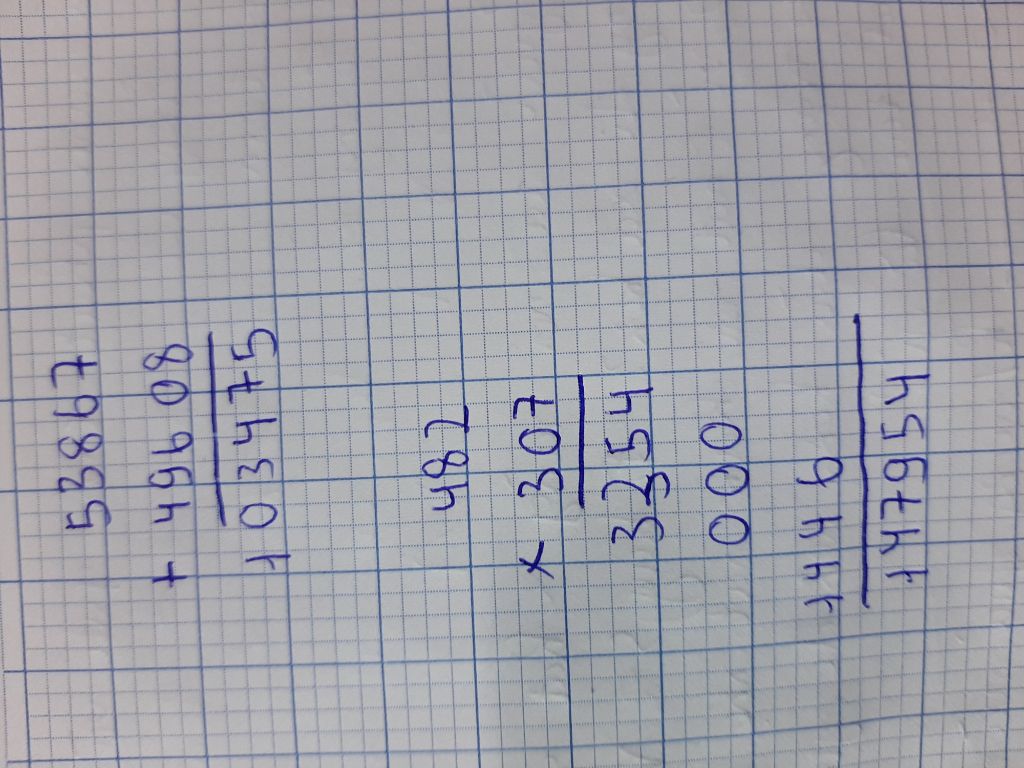 53867
+ 49608
103475
482
x 307
3354
000
1446
147954